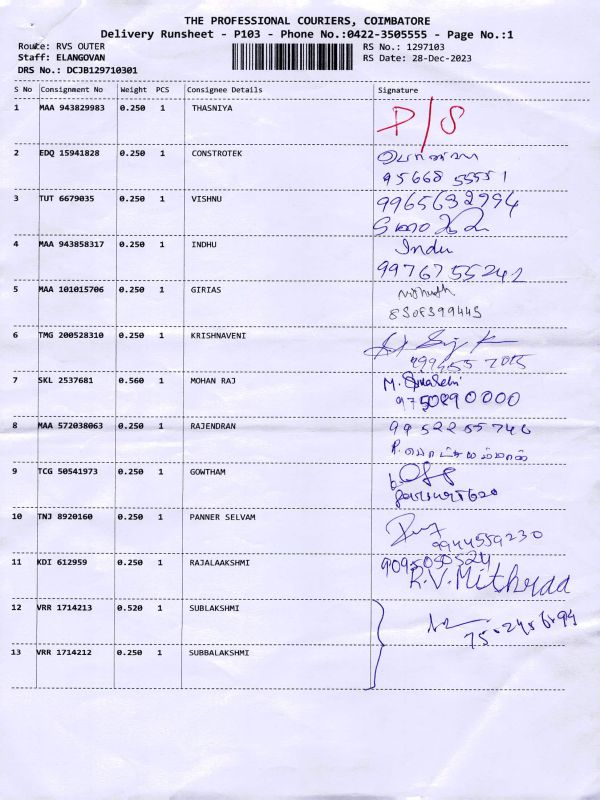 THE PROFESSIONAL COURIERS, COIMBATORE
Delivery Runsheet - P103 - Phone No.:0422-3505555 - Page No.:1
Route: RVS OUTER
RS No.: 1297103
Staff: ELANGOVAN
RS Date: 28-Dec-2023
DRS No.: DCJB129710301
S No Consignment No Weight PCS Consignee Details Signature
1 MAA 943829983 0.250 1 THASNIYA P/S
2 EDQ 15941828 0.250 1 CONSTROTEK
95668 55551
3 TUT 6679035 0.250 1 VISHNU 9965632794
4 MAA 943858317 0.250 1 INDHU Indu
9976755242
5 MAA 101015706 0.250 1 GIRIAS
8308399445
6 TMG 200528310 0.250 1 KRISHNAVENI
7 SKL 2537681 0.560 1 MOHAN RAJ M.
9750890000
8 MAA 572038063 0.250 1 RAJENDRAN 9952255746
9 TCG 50541973 0.250 1 GOWTHAM
10 TNJ 8920160 0.250 1 PANNER SELVAM
9944559230
11 KDI 612959 0.250 1 RAJALAAKSHMI 9095050524
R.V.Mithraa
12 VRR 1714213 0.520 1 SUBLAKSHMI
13 VRR 1714212 0.250 1 SUBBALAKSHMI